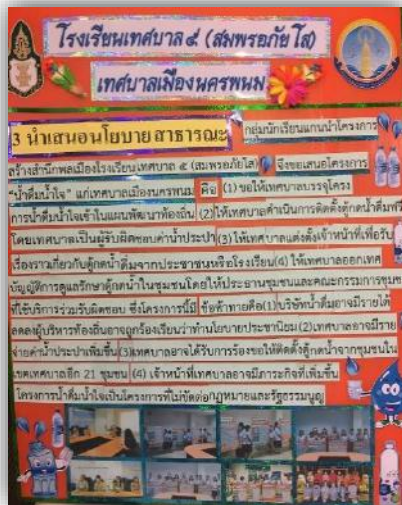 โรงเรียนเทศบาล ๕ (สมพรอภัยโส)
เทศบาลเมืองนครพนม
3 นำเสนอนโยบายสาธารณะ
กลุ่มนักเรียนแกนนำโครงการ
สร้างสำนึกพลเมืองโรงเรียนเทศบาล ๕ (สมพรอภัยโส) จึงขอเสนอโครงการ
"น้ำดื่มน้ำใจ" แก่เทศบาลเมืองนครพนม คือ (1) ขอให้เทศบาลบรรจุโครง
การน้ำดื่มน้ำใจเข้าในแผนพัฒนาท้องถิ่น (2) ให้เทศบาลดำเนินการติดตั้งตู้กดน้ำดื่มฟรี
โดยเทศบาลเป็นผู้รับผิดชอบค่าน้ำประปา (3) ให้เทศบาลแต่งตั้งเจ้าหน้าที่เพื่อรับ
เรื่องราวเกี่ยวกับตู้กดน้ำดื่มจากประชาชนหรือโรงเรียน (4) ให้เทศบาลออกเทศ
บัญญัติการดูแลรักษาตู้กดน้ำในชุมชนโดยให้ประธานชุมชนและคณะกรรมการชุมชน
ที่ใช้บริการร่วมรับผิดชอบ ซึ่งโครงการนี้มี ข้อท้าทายคือ (1) บริษัทน้ำดื่มอาจมีรายได้
ลดลงผู้บริหารท้องถิ่นอาจถูกร้องเรียนว่าทำนโยบายประชานิยม (2) เทศบาลอาจมีราย
จ่ายค่าน้ำประปาเพิ่มขึ้น (3) เทศบาลอาจได้รับการร้องขอให้ติดตั้งตู้กดน้ำจากชุมชนใน
เขตเทศบาลอีก 21 ชุมชน (4) เจ้าหน้าที่เทศบาลอาจมีภาระกิจที่เพิ่มขึ้น
โครงการน้ำดื่มน้ำใจเป็นโครงการที่ไม่ขัดต่อกฎหมายและรัฐธรรมนูญ